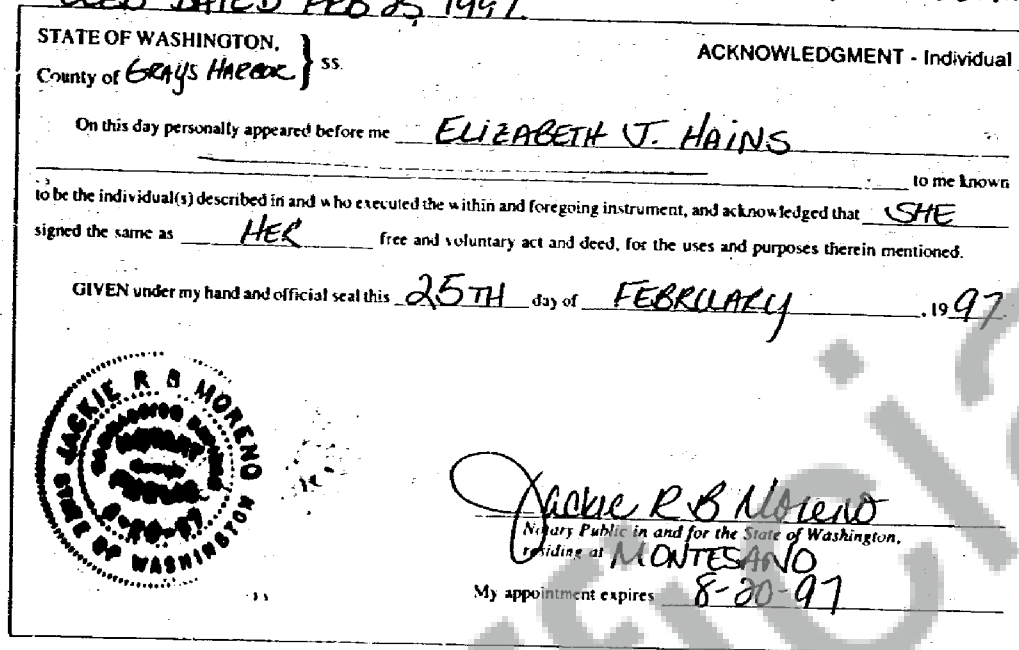 DATED FEB 25, 1997.
STATE OF WASHINGTON,
County of GRAYS HARBOR } ss.
ACKNOWLEDGMENT - Individual
On this day personally appeared before me ELIZABETH J. HAINS
to me known
to be the individual(s) described in and who executed the within and foregoing instrument, and acknowledged that SHE
signed the same as HER free and voluntary act and deed, for the uses and purposes therein mentioned.
GIVEN under my hand and official seal this 25TH day of FEBRUARY, 1997
JACKIE R B MORENO
NOTARY
PUBLIC
8-20-97
STATE OF WASHINGTON
Jackie R B Moreno
Notary Public in and for the State of Washington,
residing at MONTESANO
My appointment expires 8-20-97